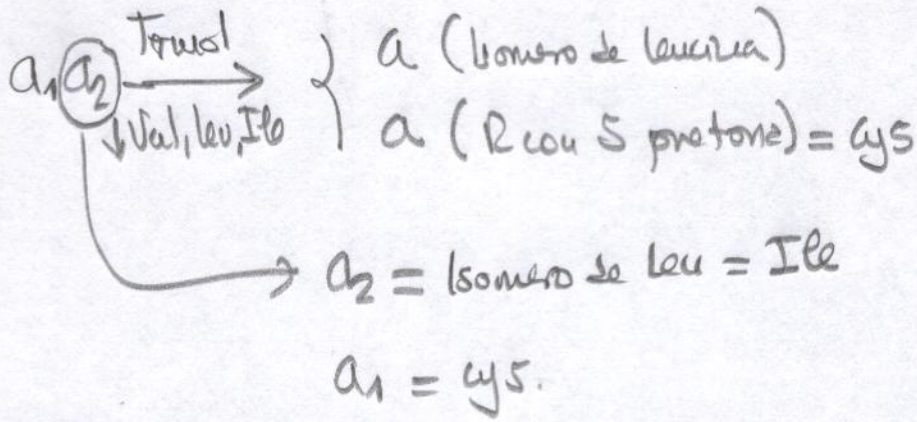 a₁a₂ Termol → { a (Isomero de leucina)
↓Val, Leu, Ile a (R con S protone) = Cys
→ a₂ = Isomero de Leu = Ile
a₁ = Cys.